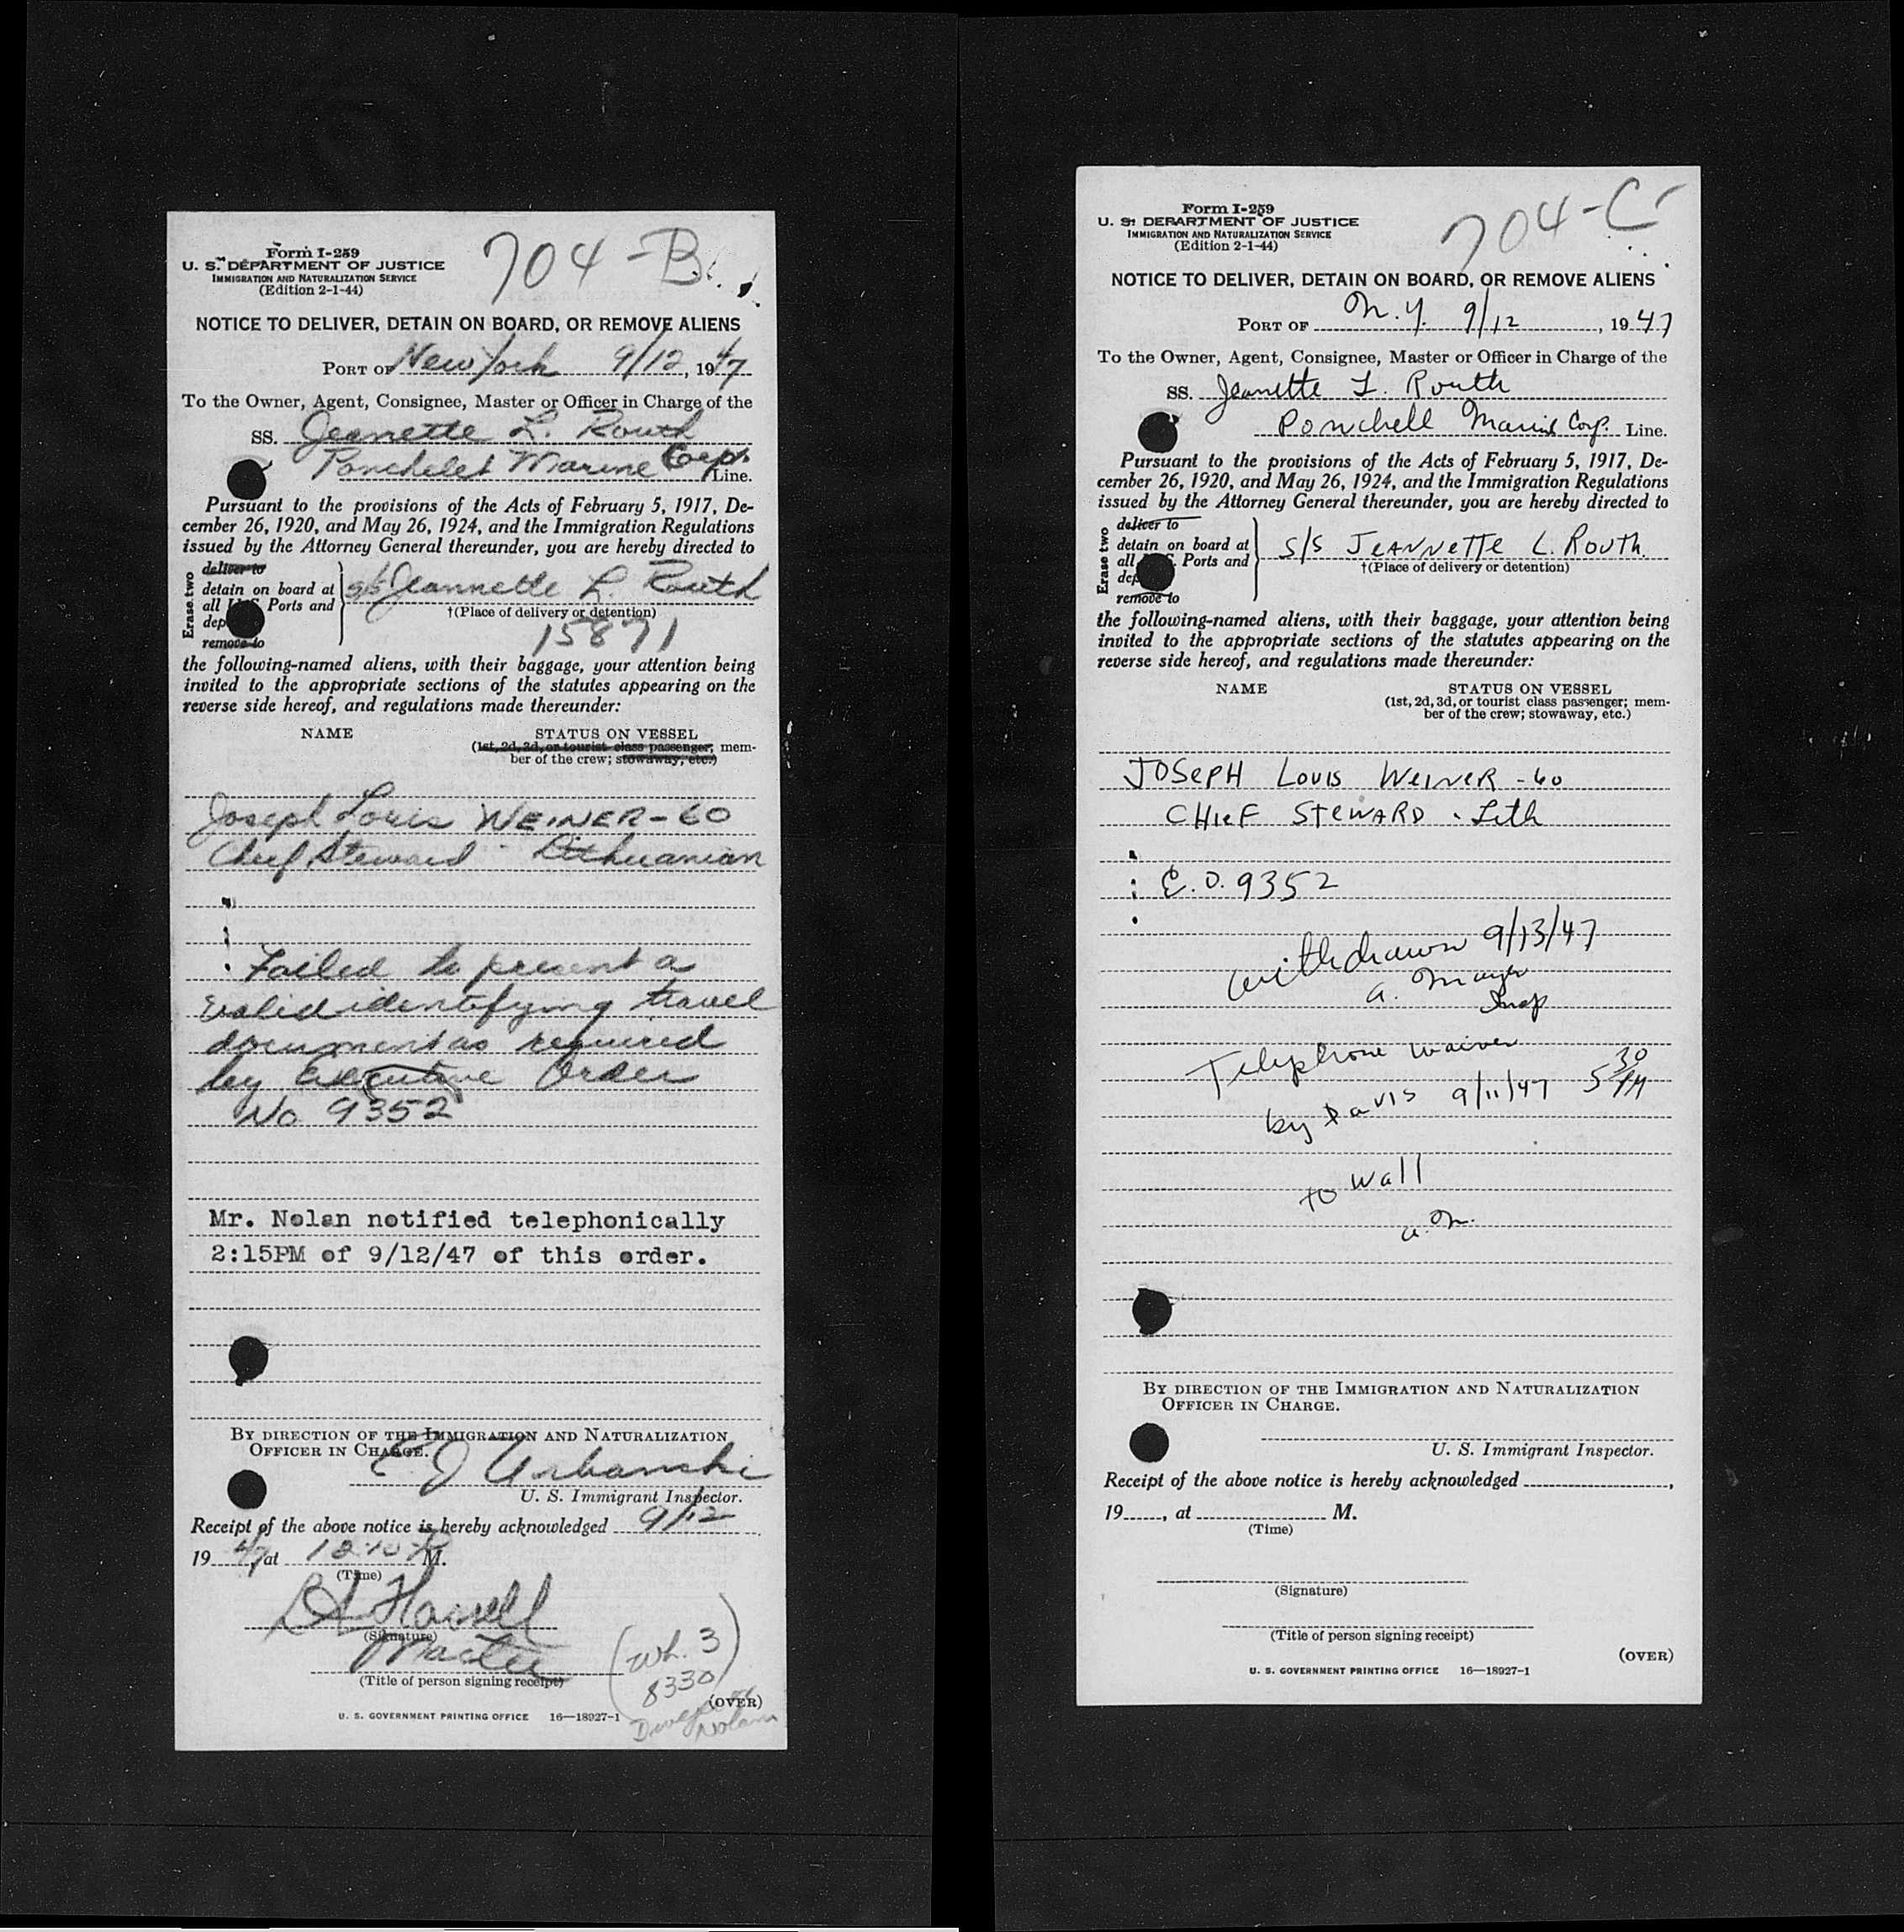 704-B
Form I-259
U. S. DEPARTMENT OF JUSTICE
IMMIGRATION AND NATURALIZATION SERVICE
(Edition 2-1-44)
NOTICE TO DELIVER, DETAIN ON BOARD, OR REMOVE ALIENS
PORT OF New York 9/12, 1947
To the Owner, Agent, Consignee, Master or Officer in Charge of the
SS. Jeanette L. Routh
Ponchelet Marine Corp. Line.
Pursuant to the provisions of the Acts of February 5, 1917, De-
cember 26, 1920, and May 26, 1924, and the Immigration Regulations
issued by the Attorney General thereunder, you are hereby directed to
Erase two
deliver to
detain on board at
all Ports and
dep
remove to
S/S Jeannette L. Routh
†(Place of delivery or detention)
15871
the following-named aliens, with their baggage, your attention being
invited to the appropriate sections of the statutes appearing on the
reverse side hereof, and regulations made thereunder:
NAME STATUS ON VESSEL
(1st, 2d, 3d, or tourist class passenger; mem-
ber of the crew; stowaway, etc.)
Joseph Louis WEINER-60
Chief Steward - Lithuanian
Failed to present a
valid identifying travel
document as required
by Executive Order
No 9352
Mr. Nolan notified telephonically
2:15PM of 9/12/47 of this order.
BY DIRECTION OF THE IMMIGRATION AND NATURALIZATION
OFFICER IN CHARGE.
E J Urbanski
U. S. Immigrant Inspector.
Receipt of the above notice is hereby acknowledged 9/12
1947, at M.
(Time)
(Signature)
Master
(Title of person signing receipt)
(Wh. 3
8330)
Nolan
(OVER)
U. S. GOVERNMENT PRINTING OFFICE 16—18927-1
704-C
Form I-259
U. S. DEPARTMENT OF JUSTICE
IMMIGRATION AND NATURALIZATION SERVICE
(Edition 2-1-44)
NOTICE TO DELIVER, DETAIN ON BOARD, OR REMOVE ALIENS
PORT OF N.Y. 9/12, 1947
To the Owner, Agent, Consignee, Master or Officer in Charge of the
SS. Jeanette L. Routh
Ponchell Marine Corp. Line.
Pursuant to the provisions of the Acts of February 5, 1917, De-
cember 26, 1920, and May 26, 1924, and the Immigration Regulations
issued by the Attorney General thereunder, you are hereby directed to
Erase two
deliver to
detain on board at
all Ports and
dep
remove to
S/S JEANNETTE L. ROUTH
†(Place of delivery or detention)
the following-named aliens, with their baggage, your attention being
invited to the appropriate sections of the statutes appearing on the
reverse side hereof, and regulations made thereunder:
NAME STATUS ON VESSEL
(1st, 2d, 3d, or tourist class passenger; mem-
ber of the crew; stowaway, etc.)
JOSEPH LOUIS WEINER - 60
CHIEF STEWARD - Lith
E.O. 9352
withdrawn 9/13/47
Insp
Telephone waiver
by Davis 9/11/47 5 30 PM
to Wall
a.m.
BY DIRECTION OF THE IMMIGRATION AND NATURALIZATION
OFFICER IN CHARGE.
U. S. Immigrant Inspector.
Receipt of the above notice is hereby acknowledged ,
19 , at M.
(Time)
(Signature)
(Title of person signing receipt)
(OVER)
U. S. GOVERNMENT PRINTING OFFICE 16—18927-1